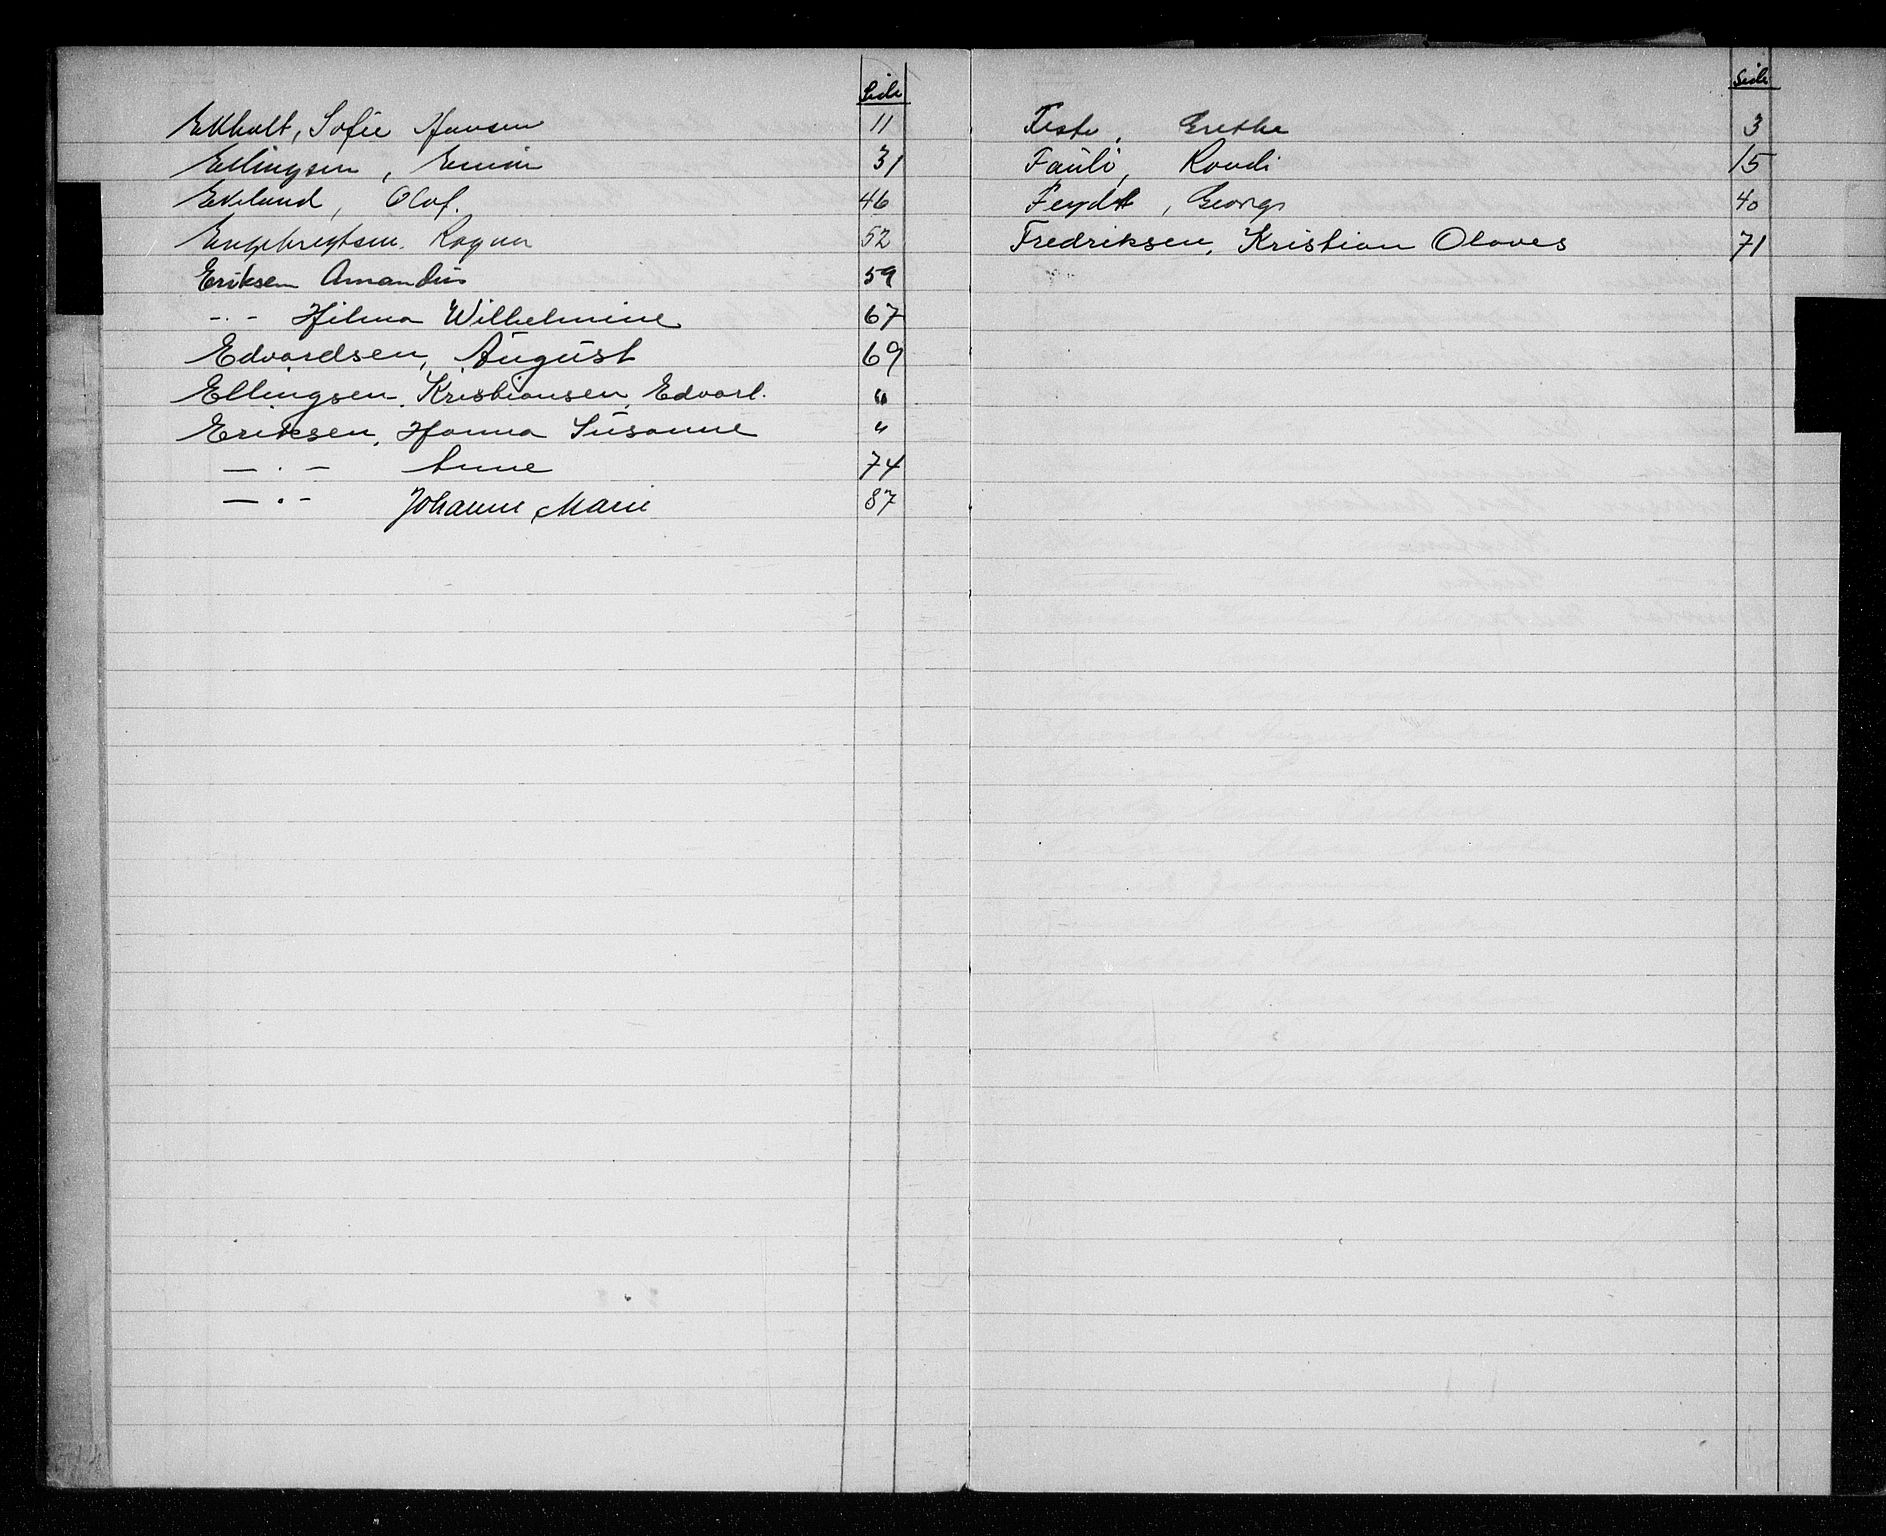 Side
Ekholt, Sofie Hansen 11
Ellingsen, 31
Ekelund, Olof. 46
Engebregtsen. Ragna 52
Eriksen Amandus 59
-.- Hilma Wilhelmine 67
Edvardsen, August 69
Ellingsen, Kristiansen, Edvarl. "
Eriksen, Hanna Susanne "
- . - Anne 74
- . - Johanne Marie 87
Side
Feste, Grethe 3
Fauli, Randi 15
Feydt, Georg 40
Fredriksen, Kristian Olaves 71